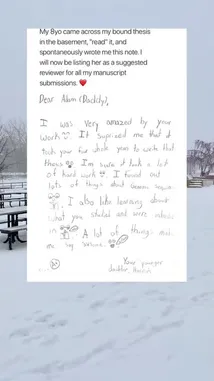 My 8yo came across my bound thesis
in the basement, "read" it, and
spontaneously wrote me this note. I
will now be listing her as a suggested
reviewer for all my manuscript
submissions. ❤️
Dear Adam (Daddy),
I was very amazed by your
work It suprised me that it
took you five whole years to write that
thesis I'm sure it took a lot
of hard work I found out
lots of things about
I also like learning about
what you studied and were
in A lot of things
me by
Your younger